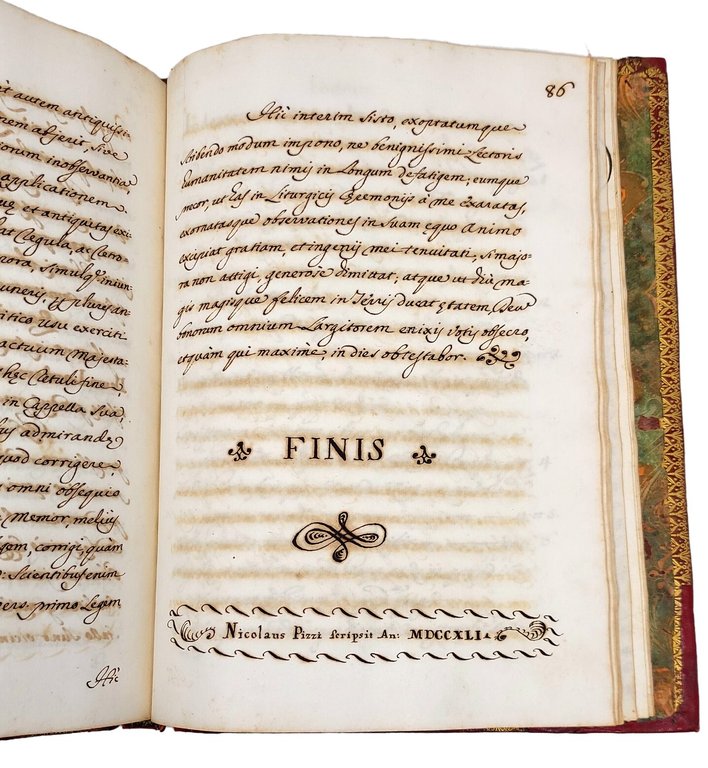 t autem antiquissi
nem asserit, sive
orum inobservantia
applicationem
quę et antiquitas exi
at Regula, a Clero
nora, simulq; iniun-
uneris, ij plurisan-
ritico usu exerciti
actuum Majesta-
hęc Retuli sine
in Cappella sua
us admirandę
quod corrigere
s omni obsequio
Memor, melius
gem, corrigi, quam
d: Scientibus enim
pers. primo Legem
Hic
86
Hic interim sisto, exoptatumque
scribendo modum impono, ne benignissimi Lectoris
humanitatem nimis in Longum defatigem; eumque
precor, ut Eas in Liturgicis Cęremoniis à me exaratas,
exornatasque observationes in suam equo Animo
excipiat gratiam, et ingenij mei tenuitati, si majo-
ra non attigi, generose dimittat; atque ut diù ma-
gis magisque felicem in Terris ducat ętatem, Deu
bonorum omnium Largitorem enixis votis obsecro,
etquàm qui maxime, in dies obtestabor.
FINIS
Nicolaus Pizzi scripsit An: MDCCXLI